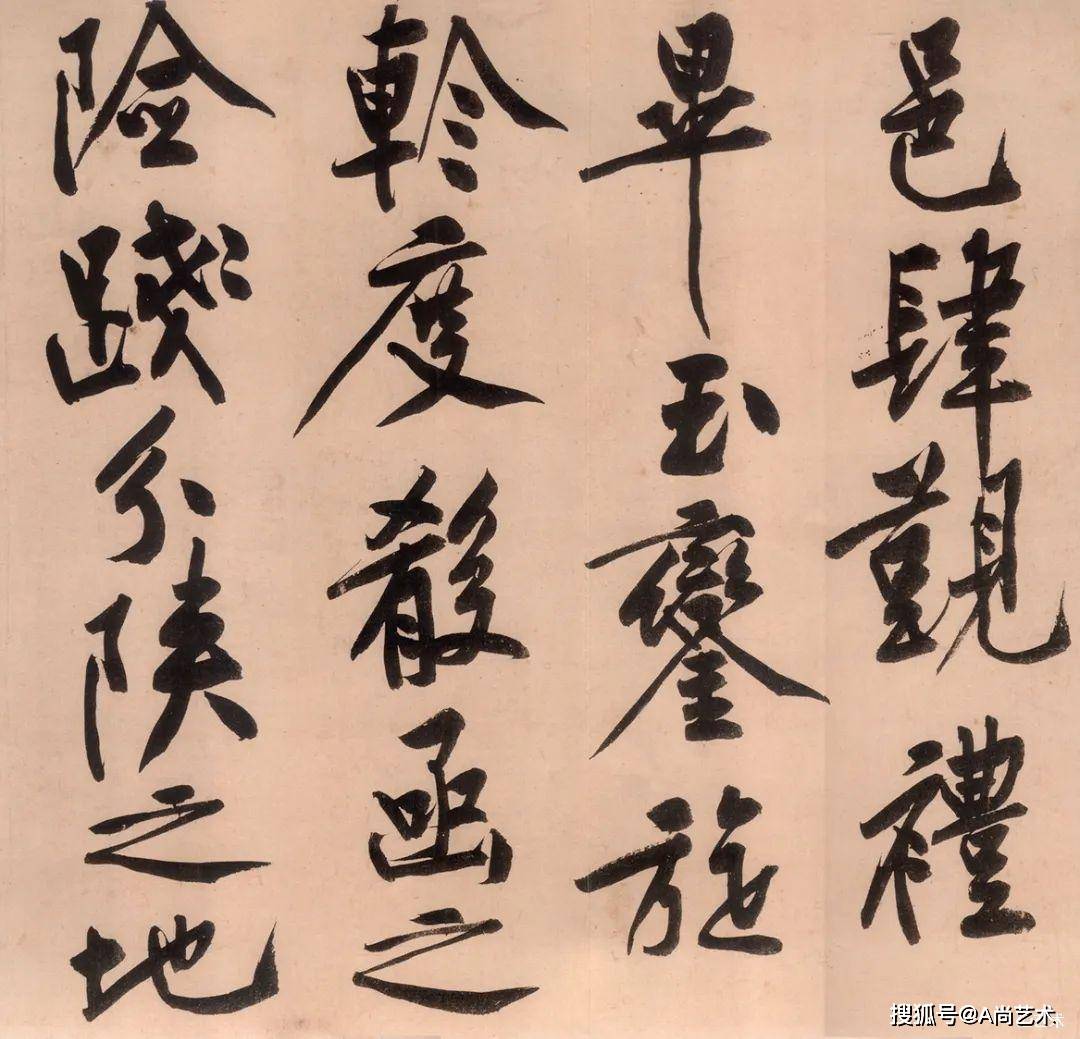 邑肆觐禮
畢玉鑾旋
軫度殽函之
險踐分陝之
地
搜狐号@A尚艺术